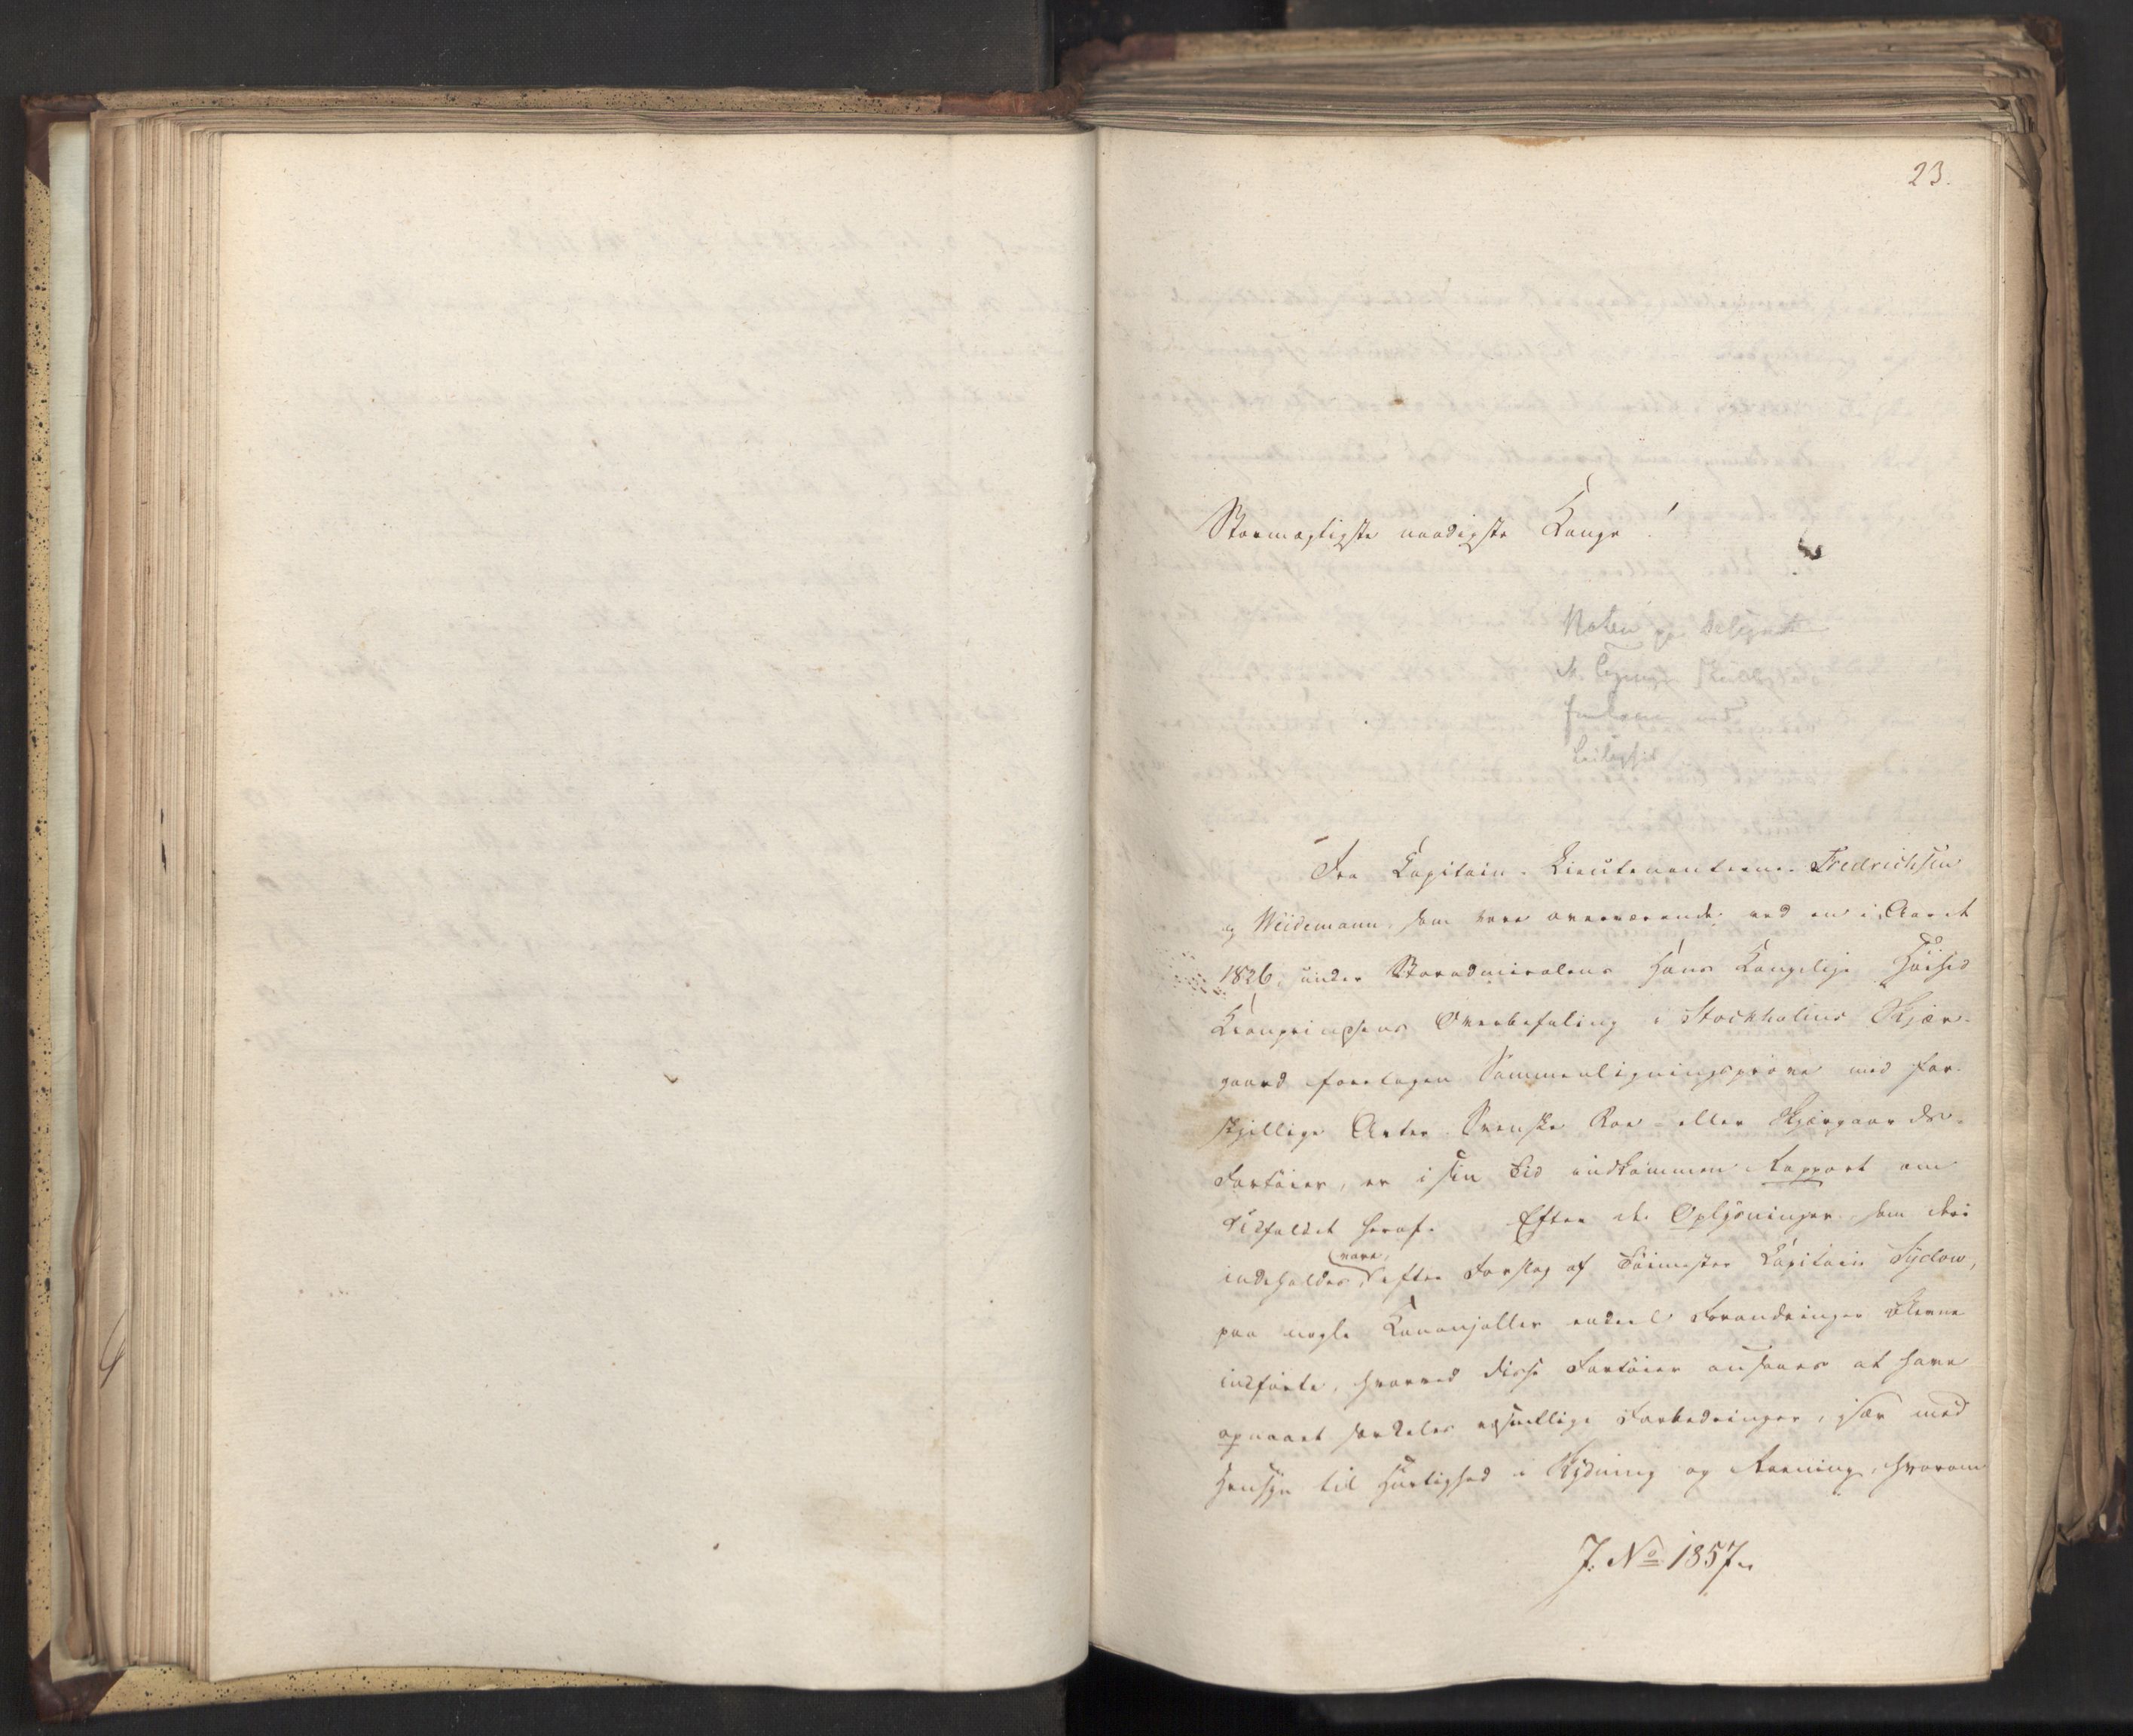 23.
Stormægtigste naadigste Konge!
Fra Capitain-Lieutenanterne Fredrichsen
og Meidemann, som vare overværende ved en i Aaret
1826, under Storadmiralens Hans Kongelige Höihed
Kronprinsens Overbefaling i Stockholms Skjær-
gaard foretagen Sammenligningspröve med for-
skjellige Arter Svenske Roe- eller Skjærgaards-
Fartöier, er i sin Tid indkommen Rapport om
Udfaldet heraf. Efter de Oplysninger som deri
indeholdes, vare, efter Forslag af Töimester Capitain Sydow,
paa nogle Kanonjoller endeel Forandringer blevne
indförte, hvorved disse Fartöier ansaaes at have
opnaaet særdeles væsentlige Forbedringer, især med
Hensyn til Hurtighed i Skydning og Roening, hvorom
J. No 1857.